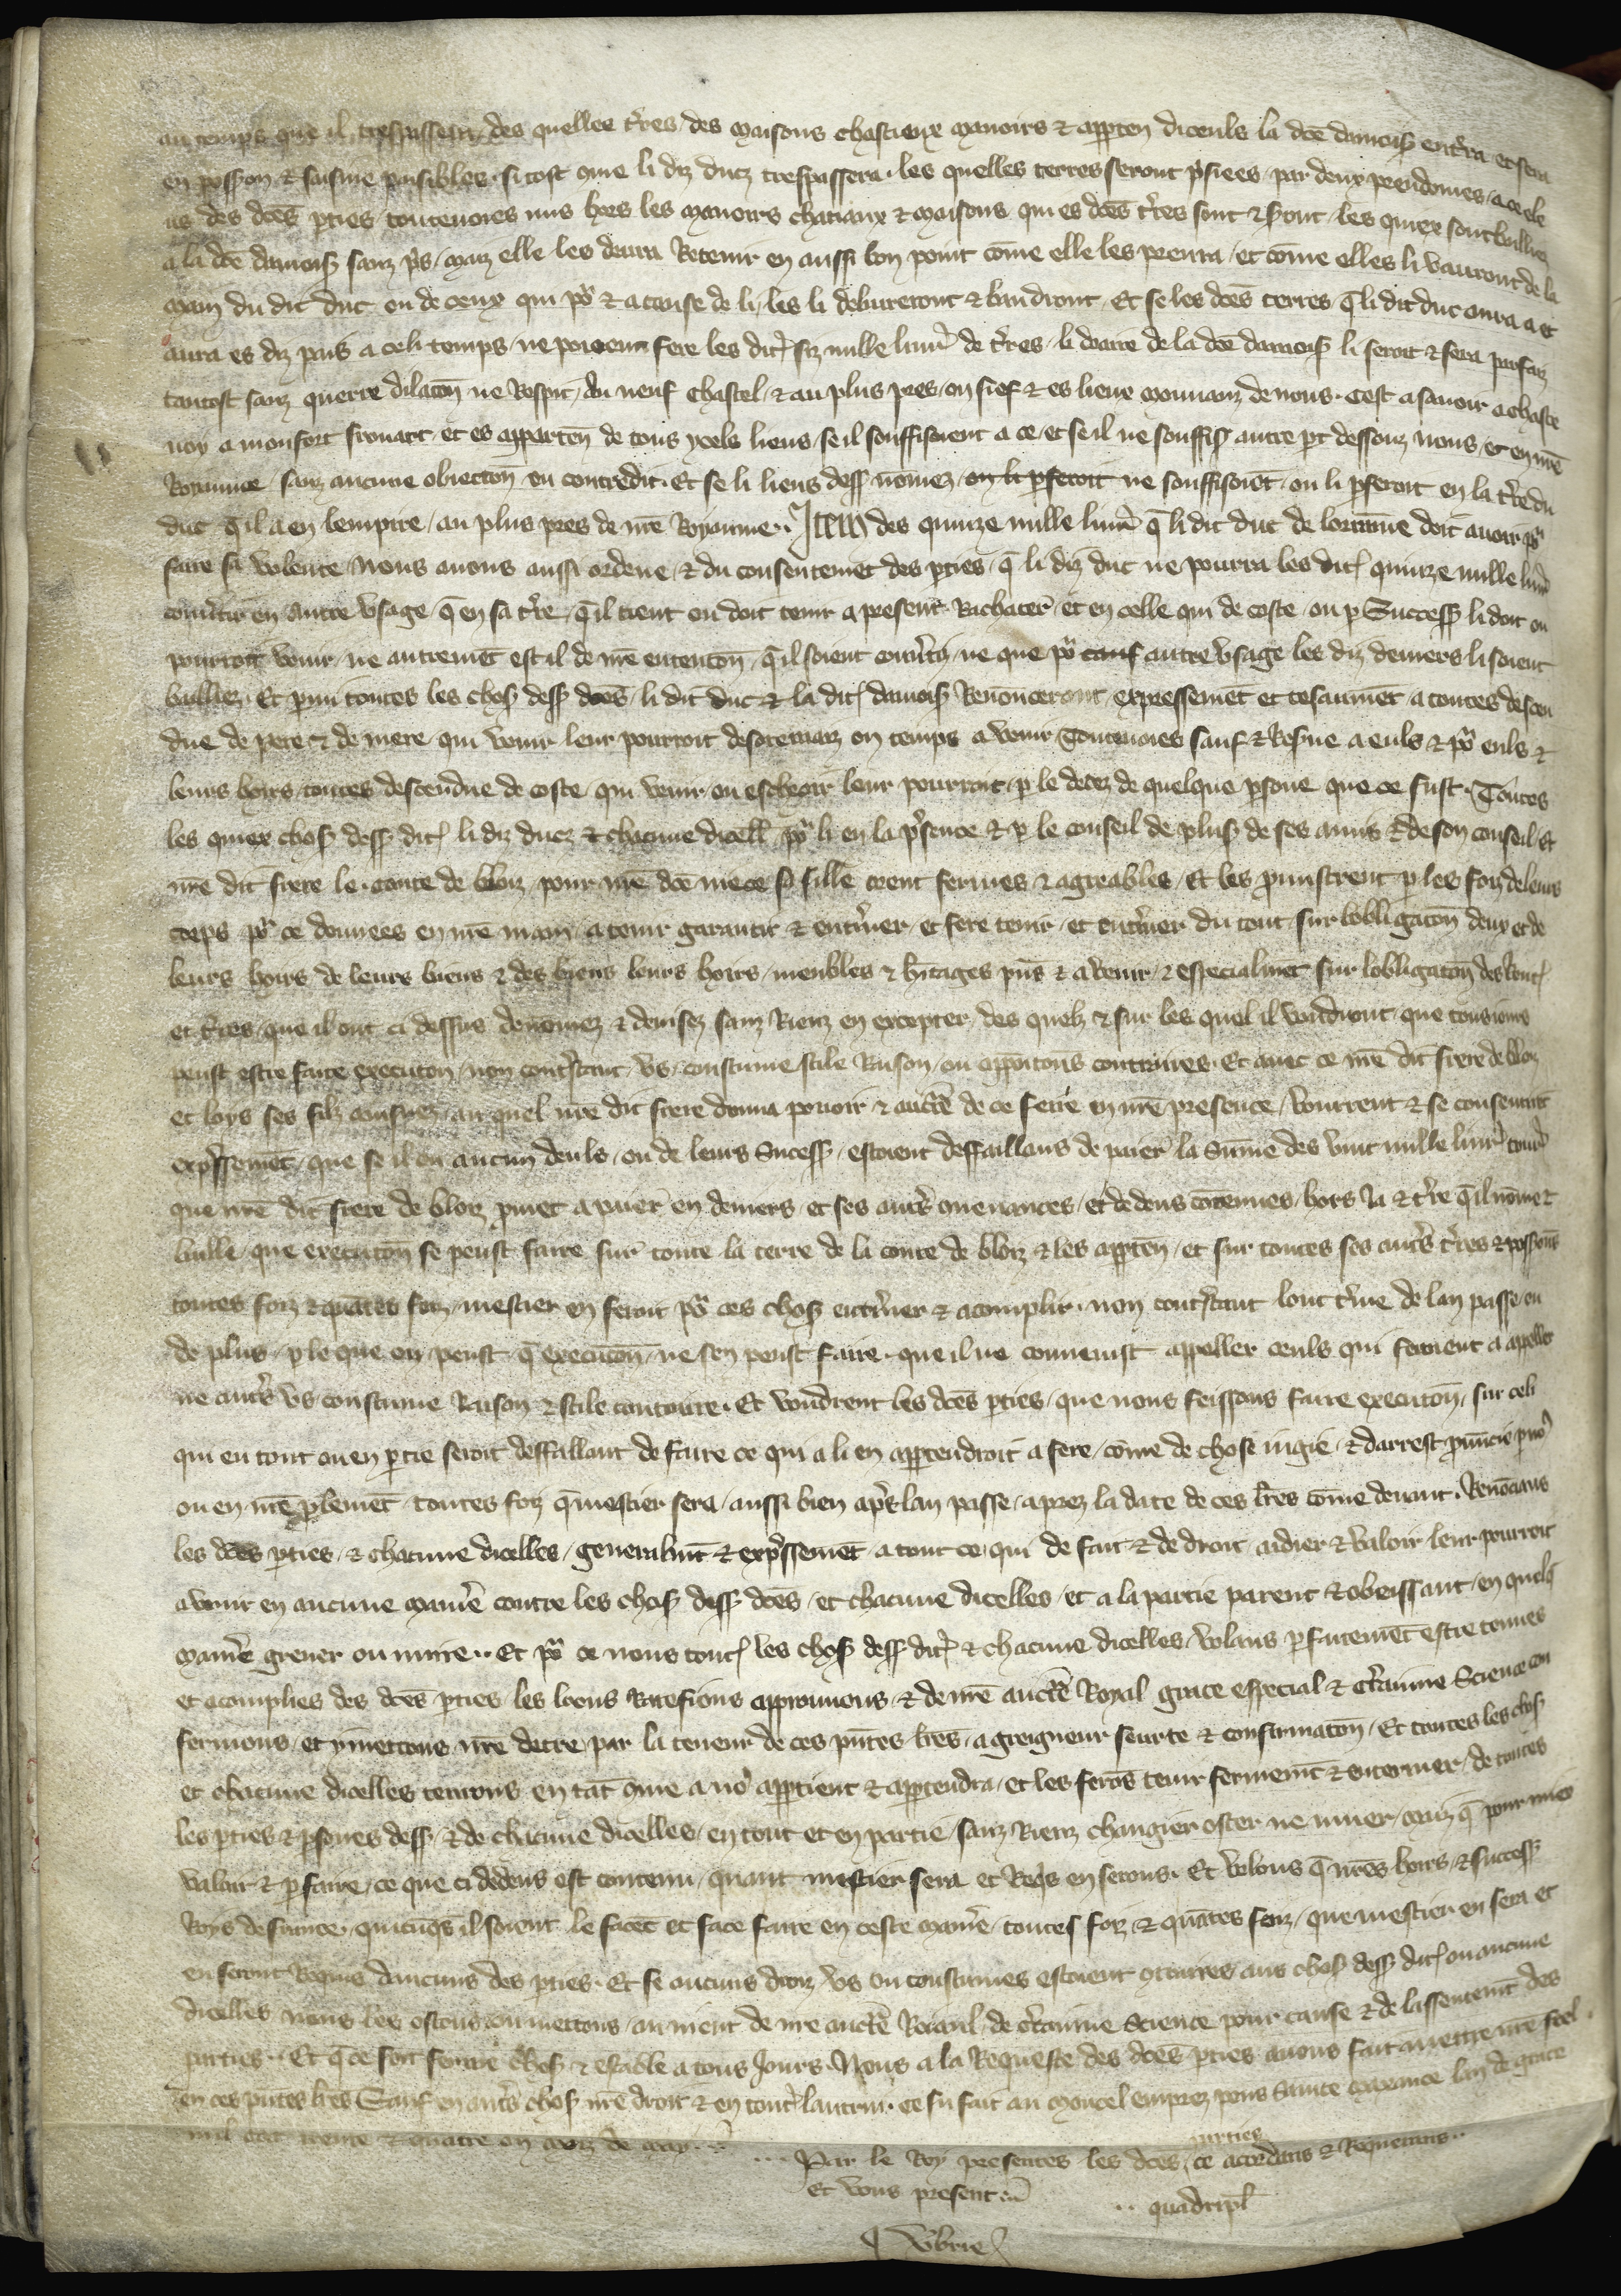 au temps que il trespassera / des quelles t'res / des maisons chastieux manoirs & apparten diceuls la dce damois entrera et sera
en possion & saisine paisibles . si tost cme li diz ducz trespassera . les quelles terres seront p'siees / par deux preudomes / a ce ele
us des dces pties toutevoies mis hors les manoirs chatiaux & maisons qui es dces t'res sont & seront / les quiex sont bailliez
a la dce damois sanz pris / maiz elle les devra Retenir en aussi bon point come elle les prenra / et come elles li vauront de la
main du dit duc ou de ceux qui po' & a cause de li / les li deliverront & baudront . Et se les dces terres q li dit duc aura a et
aura es diz pais a celi temps / ne pooient fere les dict' siz mille livr' de t'res / li doaire de la dce damois li seroit & sera parfaiz
tantost sanz querre dilacon ne Respit / du neuf chastel / & au plus pres / en fief & es lieux mouvanz de nous . Cest a savoir a chaste
noy a monfort frouart / et es apparten de tous ycels lieus / se il souffisoient a ce / et se il ne souffis autre pt dessouz nous / et en nre
Royaume / sanz aucune obiection ou contredit . Et se li lieus dess nomez / ou li pferoit ne souffisoiet / ou li pferoit en la t're du
duc qil a en lempire / au plus pres de nre Royaume .. Item des quinze mille livr' q li dit duc de lorraine doit avoir po'
faire sa volente / Nous avons aussi ordene / & du consentemet des pties / q li diz duc ne pourra les dict' quinze mille livr'
convertir en autre usage / q en sa t're / qil tient ou doit tenir a present Rachater / et en celle qui de coste / ou p Success li doit ou
pourroit venir / ne autremet est il de nre entencon / qil soient converti / ne que po' autre usage les diz deniers li soient
bailliez . Et pmi toutes les chos dess dces / li dit duc & la dict' damois Renonceront expressemet et tesaumet a toutes descen
due de pere & de mere qui venir leur pourroit desoremaiz ou temps a venir / Toutevoies sauf & Reserve a euls & po' euls &
leurs hoirs toutes descendue de coste / qui venir ou escheoir leur pourroit / p le decez de quelque psone que ce fust . Toutes
les quiex chos dess dict' li diz ducz & chacune dicell' po' li en la p'sence & p le conseil de plus de ses amis & de son conseil Et
nre dit frere le conte de bloiz / pour nre dce niece sa fille orent fermes & agreables / Et les pmistrent p les foiz de leurs
corps po' ce donnees en nre main / a tenir garantir & enterner / et fere tenir / et enterner du tout sur lobligacon deux et de
leurs hoirs de leurs biens & des biens leurs hoirs / meubles & hitages pns & avenir / & especialmet sur lobligacon des rent'
et t'res / que il ont ci dessus denomez & devisez sanz Rienz en excepter / des quels & sur les quel il voudront / que tousiours
peust estre faite execucon / non contr'stant us / coustume stile Raison / ou opposicons contraires . Et avec ce nre dit frere de bloiz
et loys ses filz ainsnez / au quel nre dit frere donna povoir & aucte de ce fere en nre presence / voutrent & se consentirt
exp'ssemet / que se il ou aucun deuls / ou de leurs Success / estoient deffaillans de paier la Sume des vint mille livr' tour'
que nre dit frere de bloiz pmet a paier en deniers / et ses autr's cvenances / et dedens cotenues / hors la & t're qil nome &
baille / que execucon se peust faire sur toute la terre de la conte de bloiz & les apparten / et sur toutes ses autr's t'res & possions
toutes foiz & quantes foiz / mestier en seroit po' ces chos enterner & acomplir . non contr'stant tout t'me de lan passe / ou
de plus / p le que on peust q execucon / ne sen peust faire . que il ne convenist appeller ceuls qui feroient a apeller
ne autr's us coustume Raison & stile contraire . Et voudrent les dces pties / que nous feissons faire execucon / sur celi
qui en tout ou en ptie seroit deffallant de faire ce qui a li en apptendroit a fere / come de chose iugie / & darrest pnuncie p no'
ou en nre plemet . toutes foiz q mestier sera / aussi bien ap's lan passe / aprez la date de ces lres come devant . Renoncans
les dces pties / & chacune dicelles / generalmt & exp'ssemet / a tout ce qui de fait & de droit / aidier & valoir leur pourroit
avenir en aucune maniere contre les chos dess dces / et chacune dicelles / et a la partie parent & obeissant / en quelq
maniere grever ou nuire .. Et po' ce nous tout' les chos dess dict' & chacune dicelles / volans pfaitemet estre tenues
et acomplies des dces pties les loons Ratefions approuvons / & de nre aucte Royal grace especial & c'taine Science con
fermons / et ymettons nre decre par la teneur de ces pntes lres / a greigneur seurte & confirmacon / Et toutes les chos
et chacune dicelles tenrons en tat cme a no' apptient & apptendra / et les feros tenir fermemt & enterner / de toutes
les pties & psones dess / & de chacune dicelles / en tout et en partie / sanz Rienz changier oster ne muer / maiz q pour miex
valoir & pfaire / ce que ci dedens est contenu / quant mestier sera et Req's en serons . Et volons q nres hoirs & success
Roys de france . quicuqs il soient le facet et face faire en ceste maniere / toutes foiz & quates foiz / que mestier en sera et
en seront Requis daucuns des pties . Et se aucuns droiz us ou coustumes estoient ct'aires aus chos dess dict' ou aucune
dicelles nous les ostons & mettons / au nient de nre aucte Roiaul / de c'taine Science pour cause & de lassentemt des
parties .. Et q ce soit ferme chos & estable a tous Jours . Nous a la Requeste des dces pties avons fait mettre nre seel .
en ces pntes lres Sauf en autr's chos nre droit & en tout' lautrui . ce fu fait au moncel emprez pons Sainte maxance lan de grace
mil ccc trente & quatre ou moiz de may ..
... Par le Roy presentes les dces parties ce acordans & Requerans ..
Et vous present
.. quadripl